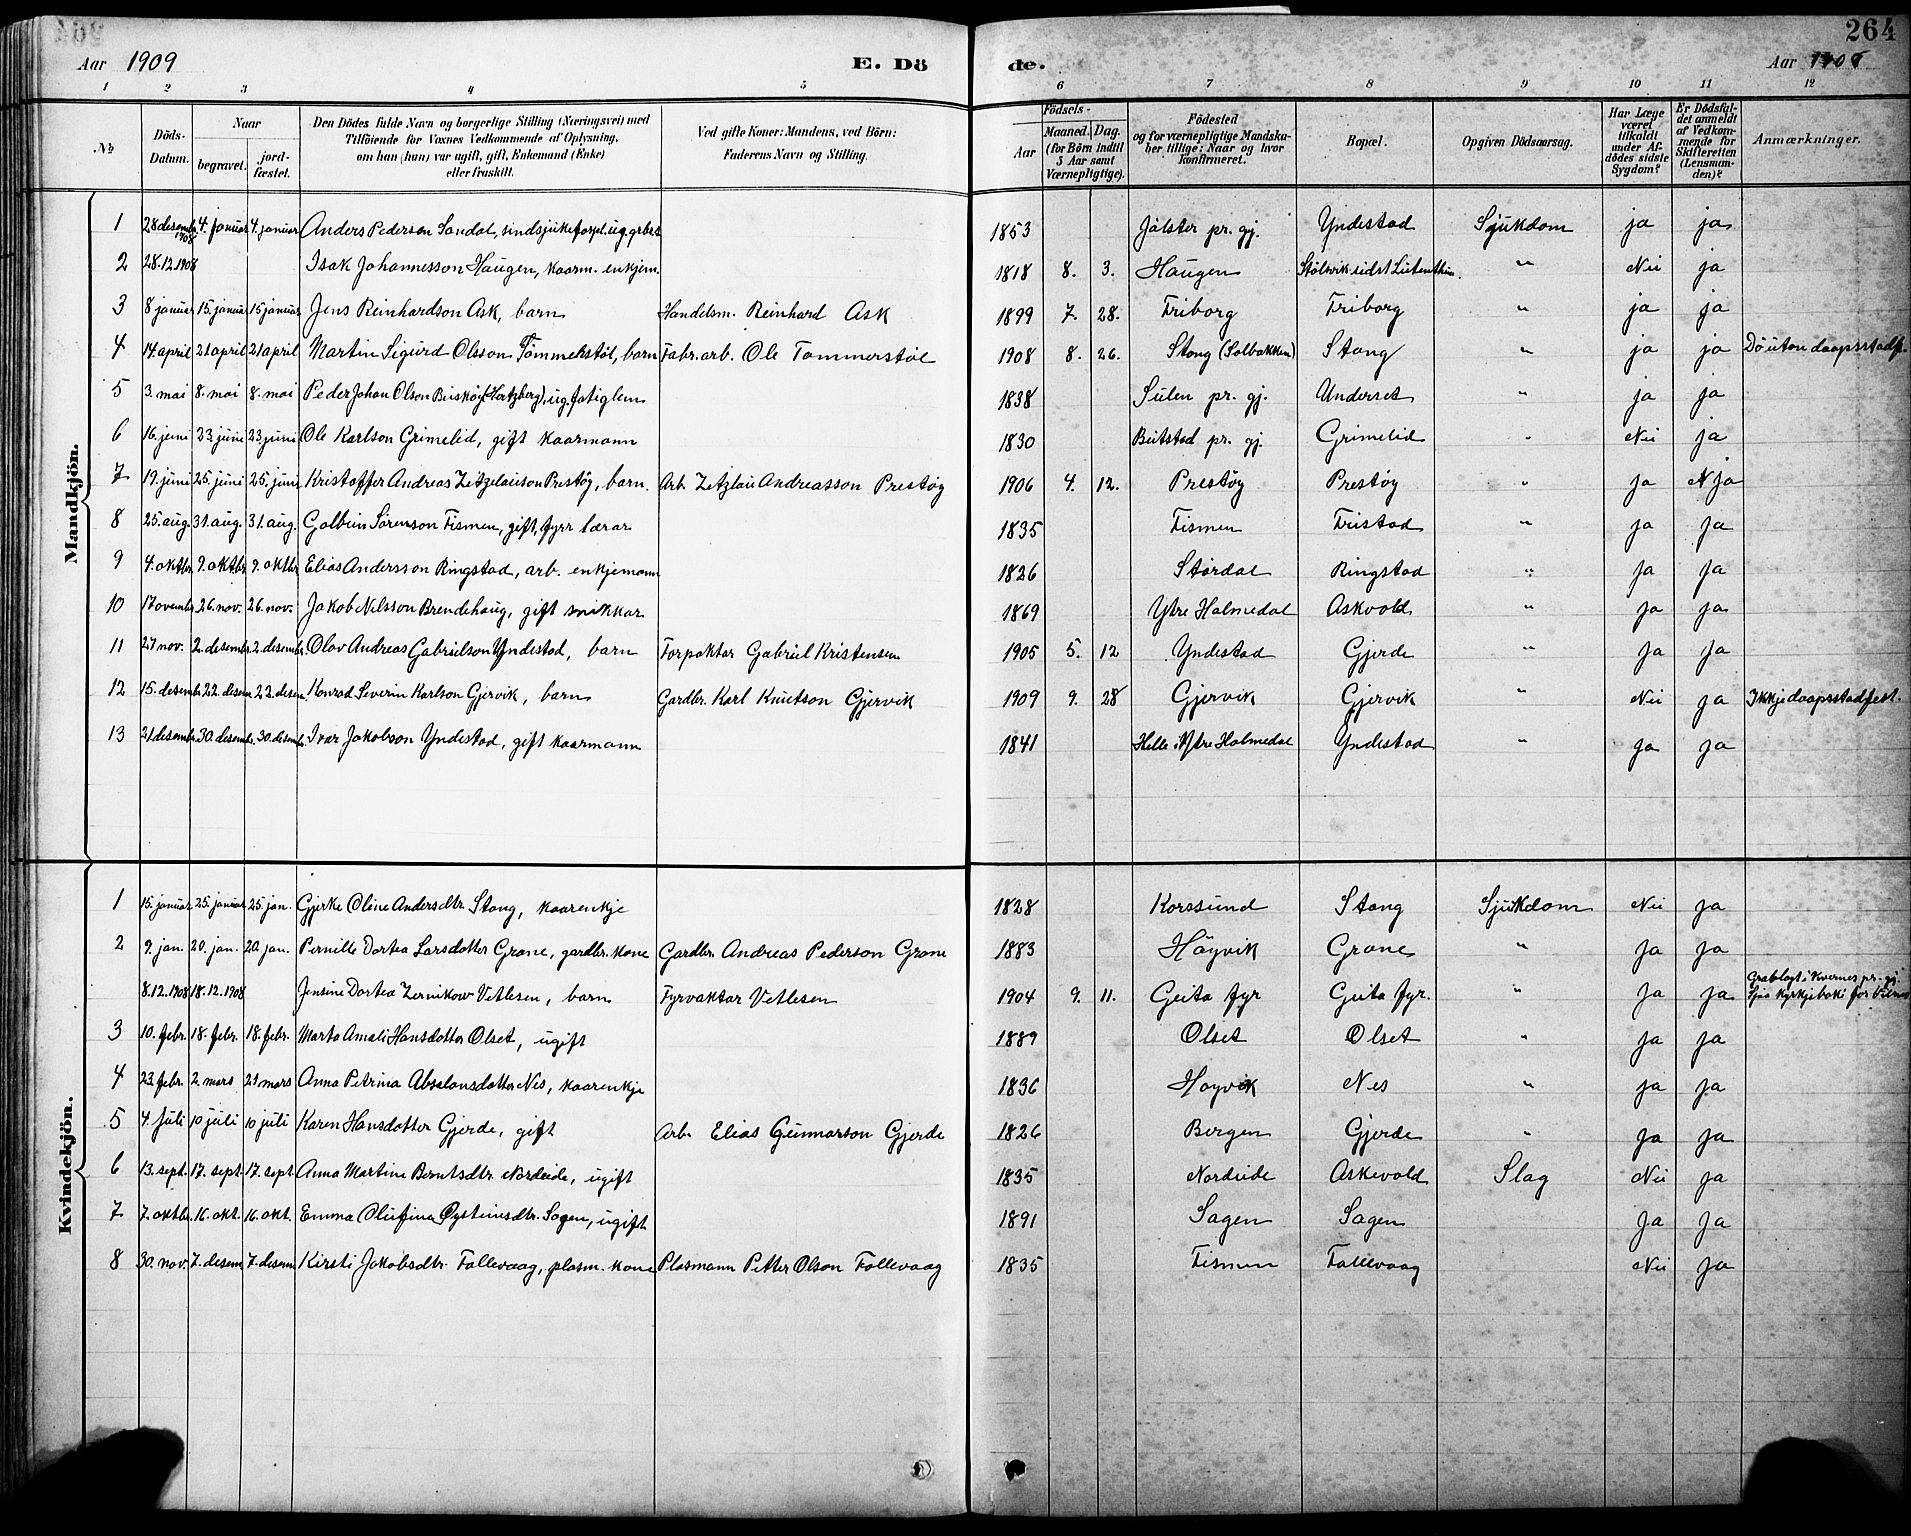 264
Aar 1909 E. Dö de. Aar 1909
1 2 3 4 5 6 7 8 9 10 11 12
№ Döds-Datum. Naar begravet. jordfæstet. Den Dödes fulde Navn og borgerlige Stilling (Næringsvei) med Tilföiende for Voxnes Vedkommende af Oplysning, om han (hun) var ugift, gift, Enkemand (Enke) eller fraskilt. Ved gifte Koner: Mandens, ved Börn: Faderens Navn og Stilling. Födsels- Aar Maaned. Dag. (for Börn indtil 3 Aar samt Værnepligtige). Födested og for værnepligtige Mandskaber tillige: Naar og hvor konfirmeret. Bopæl. Opgiven Dödsaarsag. Har Læge været tilkaldt under Afdödes sidste Sygdom? Er Dödsfaldet anmeldt af Vedkommende for Skifteretten (Lensmanden)? Anmærkninger.
Mandkjön.
1 28 desembr 1908 4. januar 4. januar Anders Pederson Sandal, sindsjuke forpl. ug. grbr.s 1853 Jølster pr. gj. Yndestad Sjukdom ja ja
2 28.12.1908 Isak Johannesson Haugen, kaarm. enkjem. 1818 8. 3. Haugen " Nei ja
3 8 januar 15. januar 15 januar Jens Reinhardson Ask, barn Handelsm. Reinhard Ask 1899 7. 28. Friborg Friborg " ja ja
4 14. april 21 april 21 april Martin Sigurd Olsson Tømmerstøl, barn Fabr. arb. Ole Tømmerstøl 1908 8. 26. Stong (Solbakken) Stong " ja ja Dø utan daapsstadf.
5 3. mai 8. mai 8. mai Peder Johan Olson Buskøy (Hertzberg), ug. fatiglem 1838 Sulen pr. gj. Underset " ja ja
6 16. juni 23 juni 23 juni Ole Karlson Grimelid, gift kaarmann 1830 Beitstad pr. gj. Grimelid " Nei ja
7 19. juni 25. juni 25. juni Kristoffer Andreas Zetzelauson Prestøy, barn. Arb. Zetzlau Andreasson Prestøy 1906 4. 12. Prestøy Prestøy " ja Nja
8 25. aug. 31. aug. 31. aug. Golbein Sørenson Fismen, gift, fyrr lærar 1835 Fismen Fristad " ja ja
9 4. oktbr. 9. oktbr 9. oktbr Elias Andersson Ringstad, arb. enkjemann 1826 Stordal Ringstad " ja ja
10 17ovembr 26. nov. 26. nov. Jakob Nilsson Brendehaug, gift snikkar 1869 Ytre Holmedal Askvold " ja ja
11 27 nov. 2. desembr. 2. desembr. Olav Andreas Gabrielson Yndestad, barn Forpaktar Gabriel Kristensen 1905 5. 12 Yndestad Gjerde " ja ja
12 15. desembr. 22. desem. 22. desem. Konrad Severin Karlson Gjervik, barn Gardbr. Karl Knutson Gjervik 1909 9. 28 Gjervik Gjervik " Nei ja Ikkje daapsstadfest.
13 21. desembr. 30. desembr. 30. desembr. Ivar Jakobson Yndestad, gift kaarmann 1841 Helle i Ytre Holmedal Yndestad " ja ja
Kvindekjön.
1 15. januar 25. januar 25. jan. Gjerke Oline Andersdtr. Stong, kaarenkje 1828 Korssund Stong Sjukdom Nei ja
2 9. jan. 20. jan. 20. jan. Pernille Dortea Larsdotter Grane, gardbr. kone Gardbr. Andreas Pederson Grane 1883 Høyvik Grane " ja ja
8.12.1908 18.12.1908 Jensine Dortea Zernikow Vetlesen, barn Fyrvaktar Vetlesen 1904 9. 11. Geita fyr Geita fyr. " ja ja Gravlagt i Kvernes pr. gj. Sjaa kyrkjeboki for Vilnes
3 10. febr. 18. febr. 18. febr. Marta Amali Hansdotter Olset, ugift 1889 Olset Olset " ja ja
4 23. febr. 2. mars 21 mars Anna Petrina Abselonsdotter Nes, kaarenkje 1836 Høyvik Nes " ja ja
5 4. juli 10 juli 10 juli Karen Hansdotter Gjerde, gift Arb. Elias Gunnarson Gjerde 1826 Bergen Gjerde " ja ja
6 13. sept. 17. sept. 17. sept. Anna Martine Berntsdtr. Nordeide, ugift 1835 Nordeide Askevold Slag Nei ja
7 7. oktbr. 16. okt. 16. okt. Emma Olufina Øysteinsdtr. Sagen, ugift 1891 Sagen Sagen ja ja
8 30. nov. 7. desem 7. desem Kirsti Jakobsdtr. Follevaag, plasm. kone Plasmann Petter Olson Follevaag 1835 Fismen Follevaag Nei ja